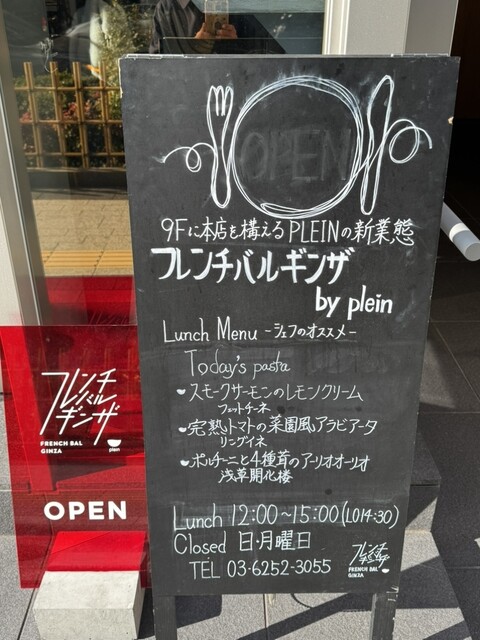 OPEN
9Fに本店を構えるPLEINの新業態
フレンチバルギンザ
by plein
Lunch Menu -シェフのオススメ-
Today's pasta
・スモークサーモンのレモンクリーム
フェットチーネ
・完熟トマトの菜園風アラビアータ
リングイネ
・ポルチーニと4種茸のアーリオオーリオ
浅草開化楼
Lunch 12:00~15:00(LO14:30)
Closed 日・月曜日
TEL 03-6252-3055
フレンチ
バル
ギンザ
FRENCH BAL
GINZA
フレンチ
バル
ギンザ
FRENCH BAL
GINZA
plein
OPEN